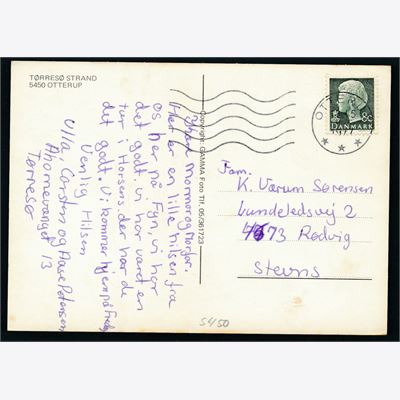 TØRRESØ STRAND
5450 OTTERUP
Kære mormor og morfar.
Her er en lille hilsen fra
os her på Fyn, vi har
det godt vi har været en
tur i Horsens der har de
det godt. Vi kommer hjem på Fredag
Venlig Hilsen
Ulla, Carsten og Aase Petersen
Ahornevænget 13
Tørresø
Copyright: GAMMA Foto Tlf. 05/361723
OTTERUP
DANMARK
80
Fam.
K. Værum Sørensen
Lundeledsvej 2
4673 Rødvig
Stevns
5450